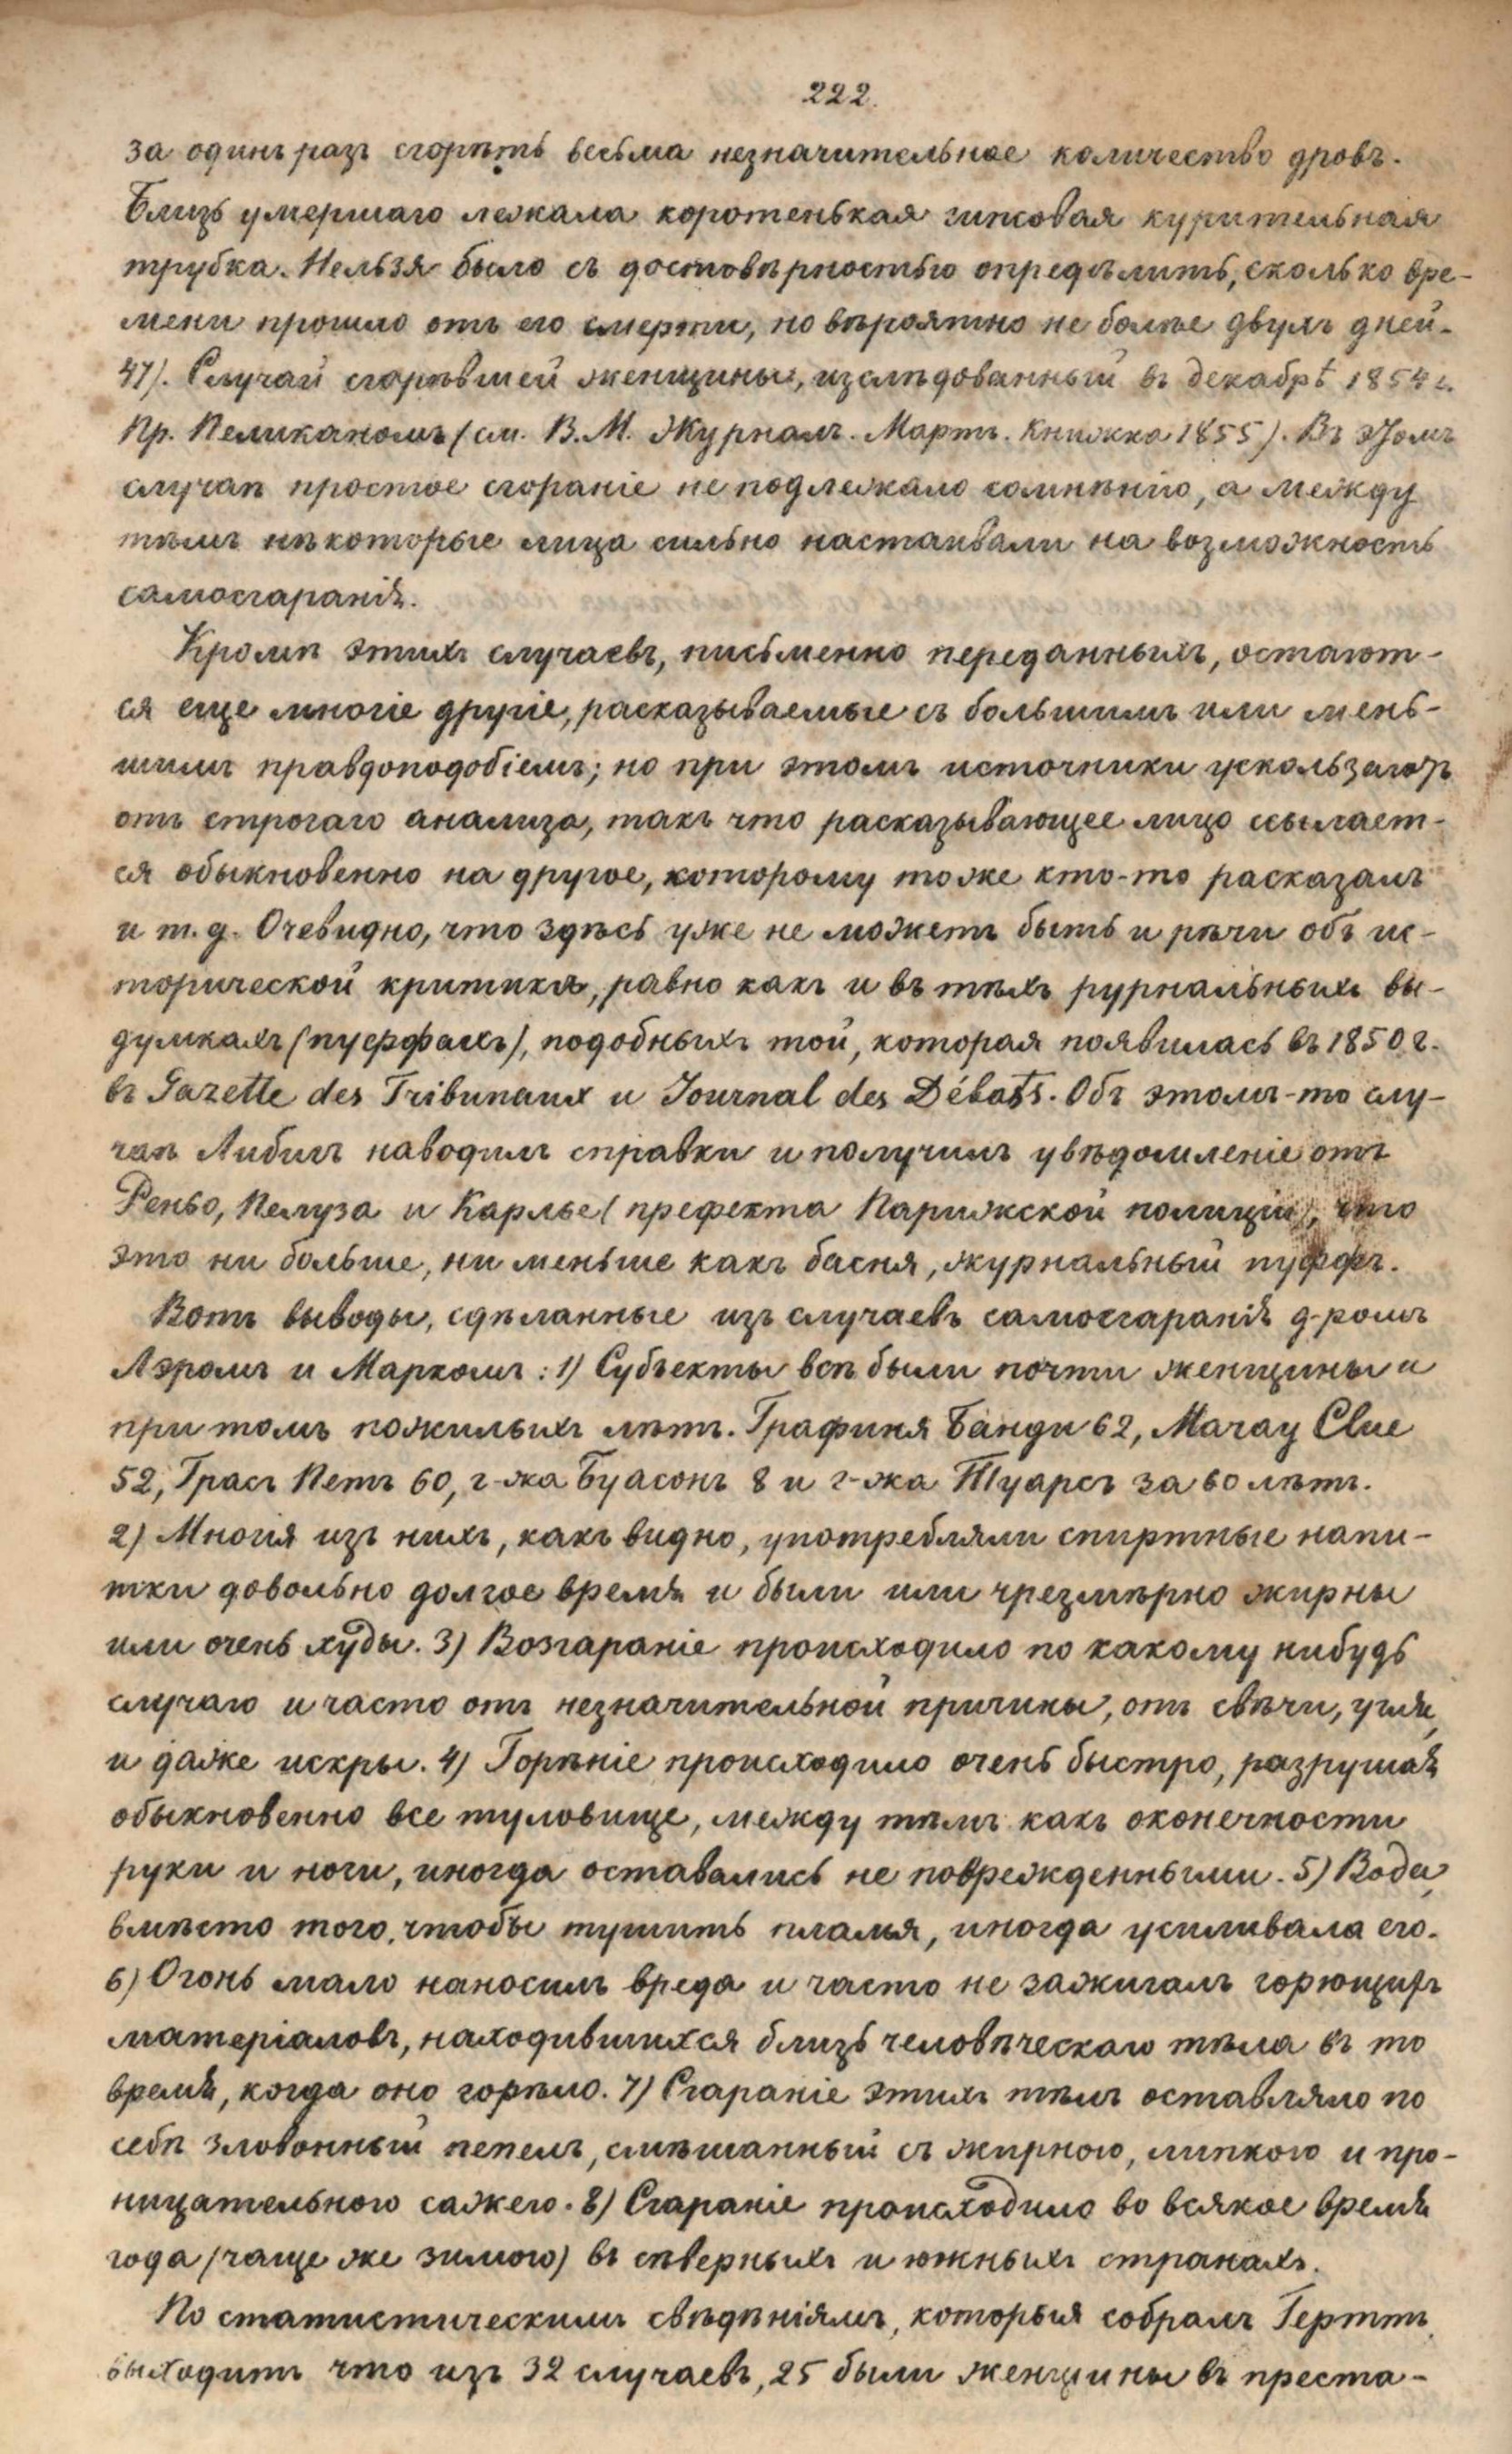 222.
за одинъ разъ сгорѣть весьма незначительное количество дровъ.
Близь умершаго лежала коротенькая гипсовая курительная
трубка. Нельзя было съ достовѣрностью опредѣлить, сколько вре-
мени прошло отъ его смерти, но вѣроятно не болѣе двухъ дней.
47). Случай сгорѣвшей женщины, изслѣдованный въ декабрѣ 1854 г.
Пр. Пеликаномъ (см. В. М. Журналъ. Мартъ. Книжка 1855). Въ этомъ
случаѣ простое сгораніе не подлежало сомнѣнію, а между
тѣмъ нѣкоторые лица сильно настаивали на возможность
самосгаранія.
Кромѣ этихъ случаевъ, письменно переданныхъ, остают-
ся еще многіе другіе, расказываемые съ большимъ или мень-
шимъ правдоподобіемъ; но при этомъ источники ускользаютъ
отъ строгаго анализа, такъ что расказывающее лицо ссылает-
ся обыкновенно на другое, которому тоже кто-то расказалъ
и т. д. Очевидно, что здѣсь уже не можетъ быть и рѣчи объ ис-
торической критикѣ, равно какъ и въ тѣхъ рурнальныхъ вы-
думкахъ (пуффахъ), подобныхъ той, которая появилась въ 1850 г.
въ Gazette des Tribunaux и Journal des Débats. Объ этомъ-то слу-
чаѣ Либихъ наводилъ справки и получилъ увѣдомленіе отъ
Реньо, Пелуза и Карлье (префекта Парижской полиціи), что
это ни больше, ни меньше какъ басня, журнальный пуффъ.
Вотъ выводы, сдѣланные изъ случаевъ самосгаранія д-ромъ
Лэромъ и Маркомъ: 1) Субъекты всѣ были почти женщины и
при томъ пожилыхъ лѣтъ. Графиня Банди 62, Maray Clue
52, Грасъ Петъ 60, г-жа Буасонъ 8 и г-жа Туарсъ за 60 лѣтъ.
2) Многія изъ нихъ, какъ видно, употребляли спиртные напи-
тки довольно долгое время и были или чрезмѣрно жирны
или очень худы. 3) Возгараніе происходило по какому нибудь
случаю и часто отъ незначительной причины, отъ свѣчи, угля,
и даже искры. 4) Горѣніе происходило очень быстро, разрушая
обыкновенно все туловище, между тѣмъ какъ оконечности
руки и ноги, иногда оставались не поврежденными. 5) Вода,
вмѣсто того, чтобы тушить пламя, иногда усиливала его.
6) Огонь мало наносилъ вреда и часто не зажигалъ горющихъ
матеріаловъ, находившихся близь человѣческаго тѣла въ то
время, когда оно горѣло. 7) Сгараніе этихъ тѣлъ оставляло по
себѣ зловонный пепелъ, смѣшанный съ жирною, липкою и про-
ницательною сажею. 8) Сгараніе происходило во всякое время
года (чаще же зимою) въ сѣверныхъ и южныхъ странахъ.
По статистическимъ свѣдѣніямъ, которыя собралъ Герттъ,
выходитъ что изъ 32 случаевъ, 25 были женщины въ преста-